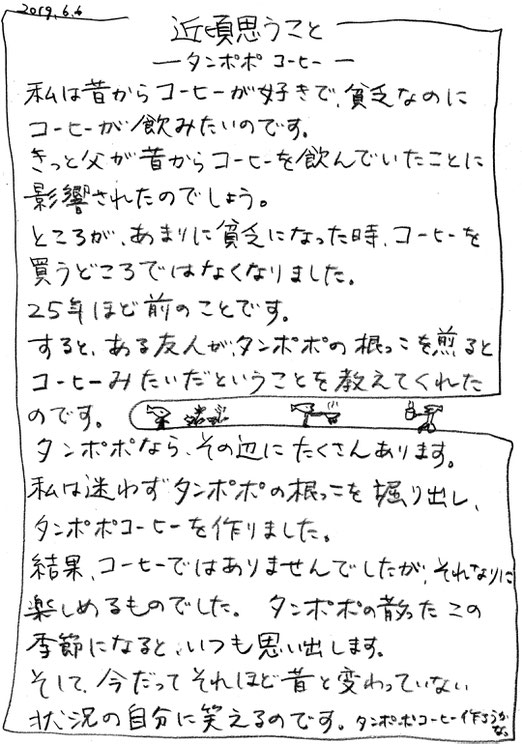 2019.6.6
近頃思うこと
ータンポポ コーヒーー
私は昔からコーヒーが好きで、貧乏なのに
コーヒーが飲みたいのです。
きっと父が昔からコーヒーを飲んでいたことに
影響されたのでしょう。
ところが、あまりに貧乏になった時、コーヒーを
買うどころではなくなりました。
25年ほど前のことです。
すると、ある友人が、タンポポの根っこを煎ると
コーヒーみたいだということを教えてくれた
のです。
タンポポなら、その辺にたくさんあります。
私は迷わずタンポポの根っこを掘り出し、
タンポポコーヒーを作りました。
結果、コーヒーではありませんでしたが、それなりに
楽しめるものでした。 タンポポの散ったこの
季節になると、いつも思い出します。
そして、今だってそれほど昔と変わっていない
状況の自分に笑えるのです。タンポポコーヒー作ろうかな。